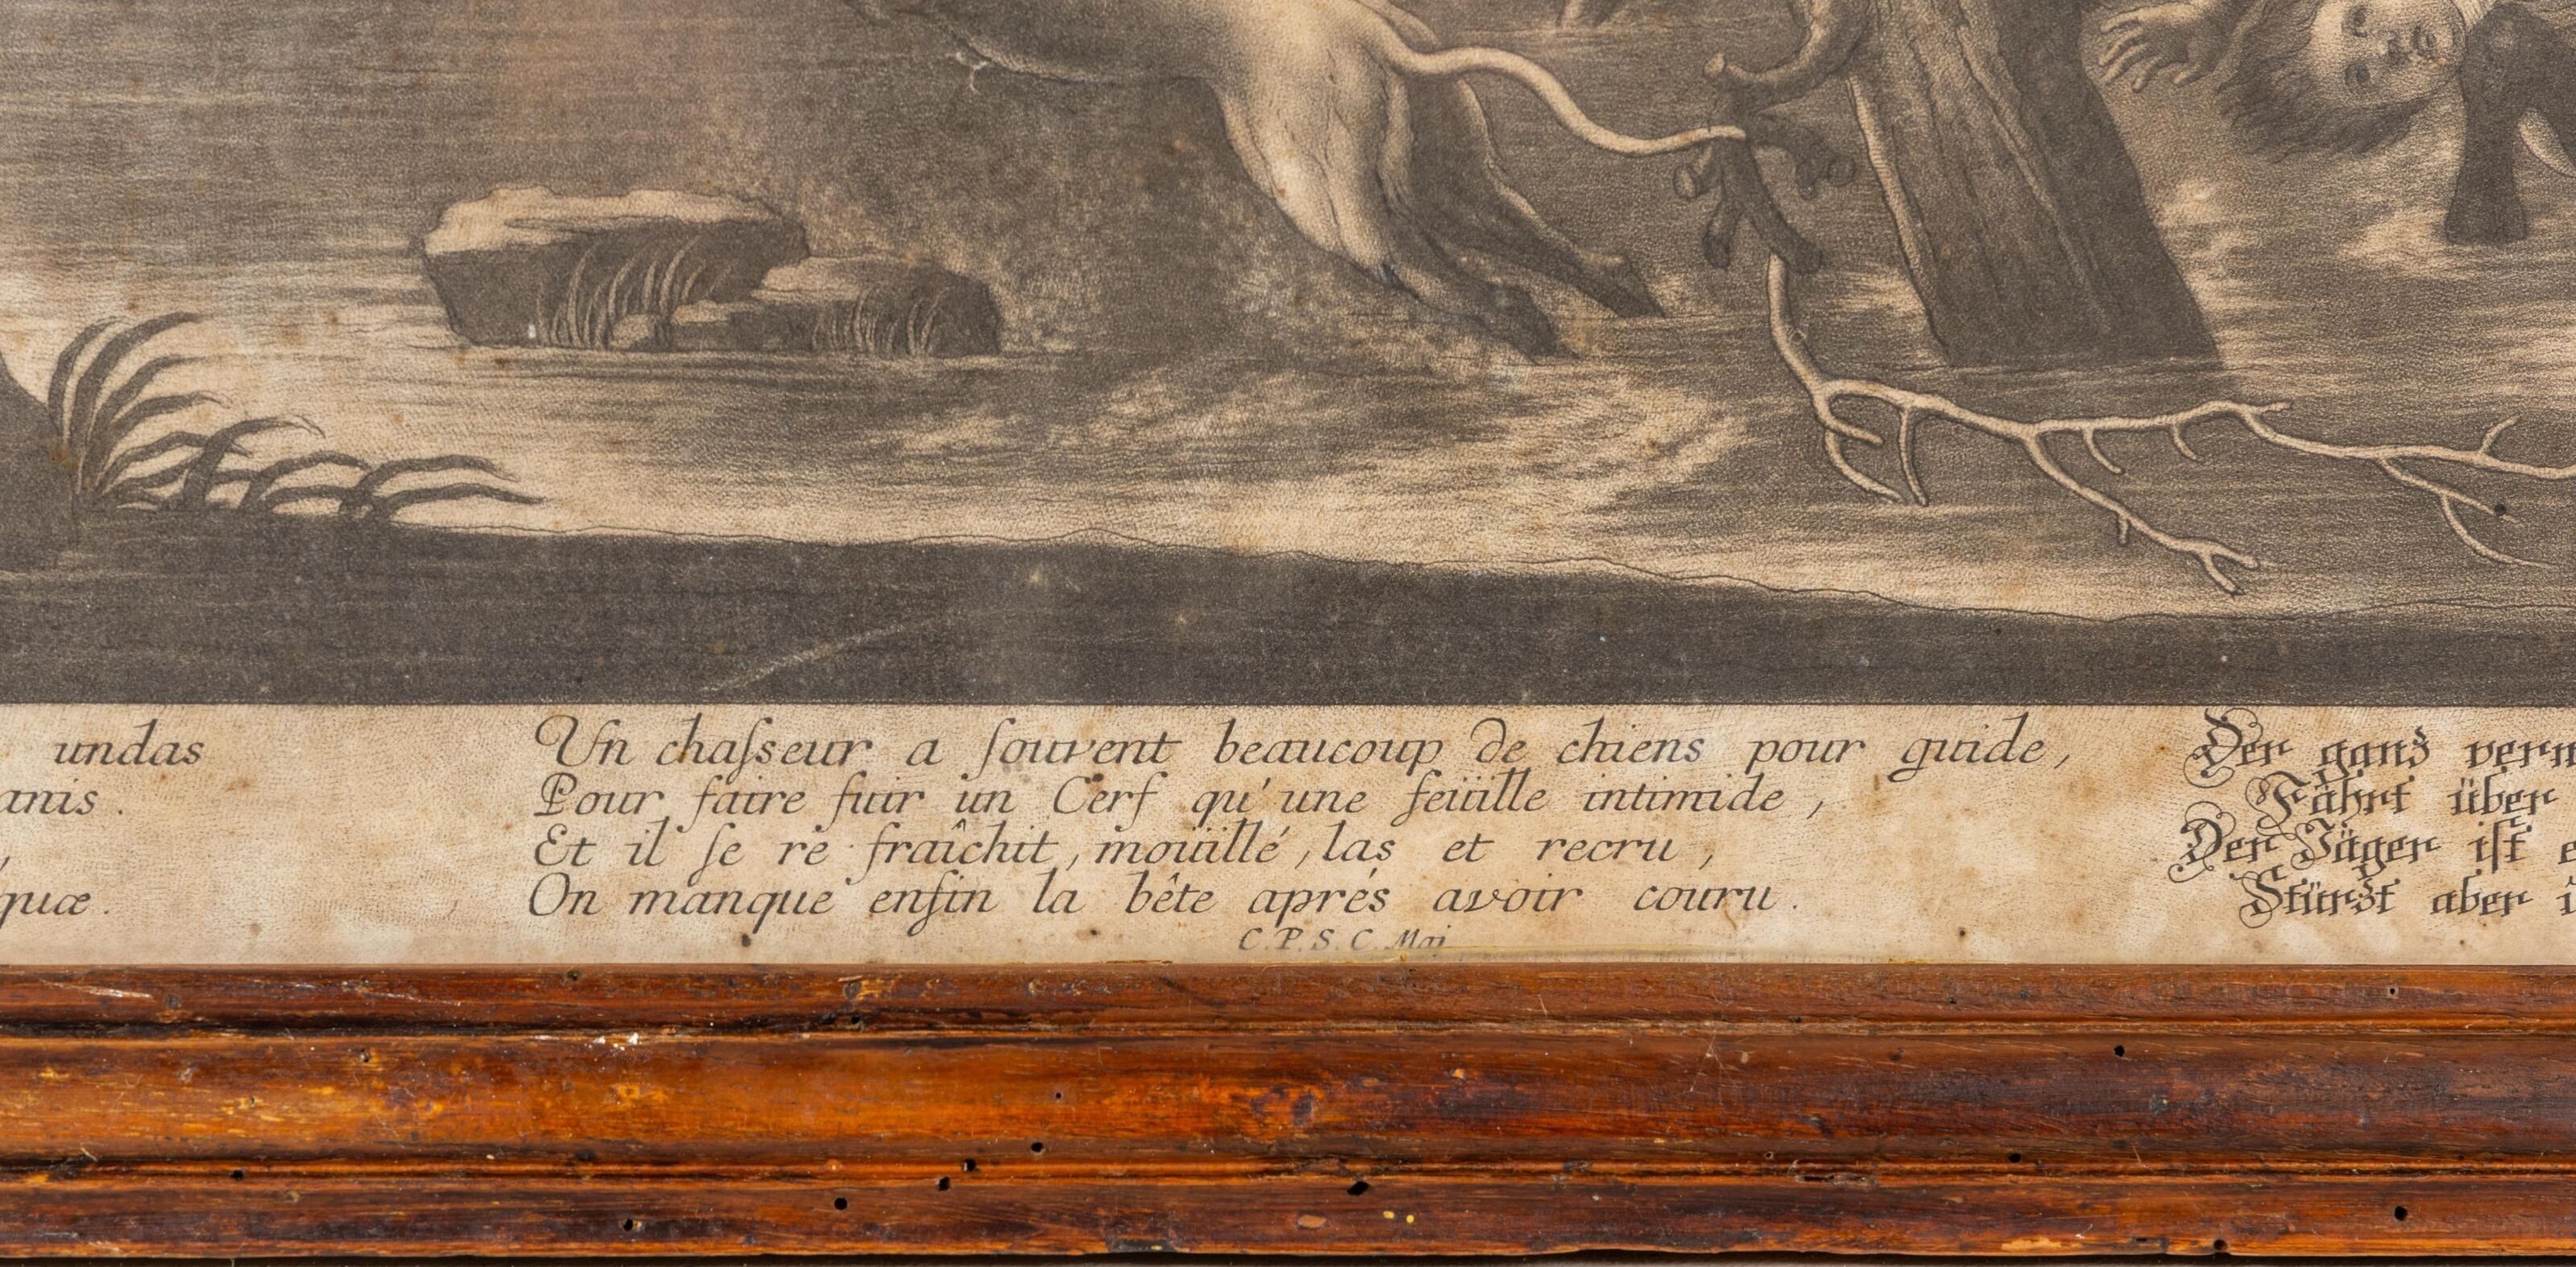 undas
anis.
,
quæ.
Un chaſseur a ſouvent beaucoup de chiens pour guide,
Pour faire fuir un Cerf qu'une feüille intimide,
Et il ſe re fraîchit, moüillé, las et recru,
On manque enfin la bête aprés avoir couru.
C. P. S. C. Maj
Der ganz verm
Fährt über
Der Jäger iſt e
Stürzt aber i